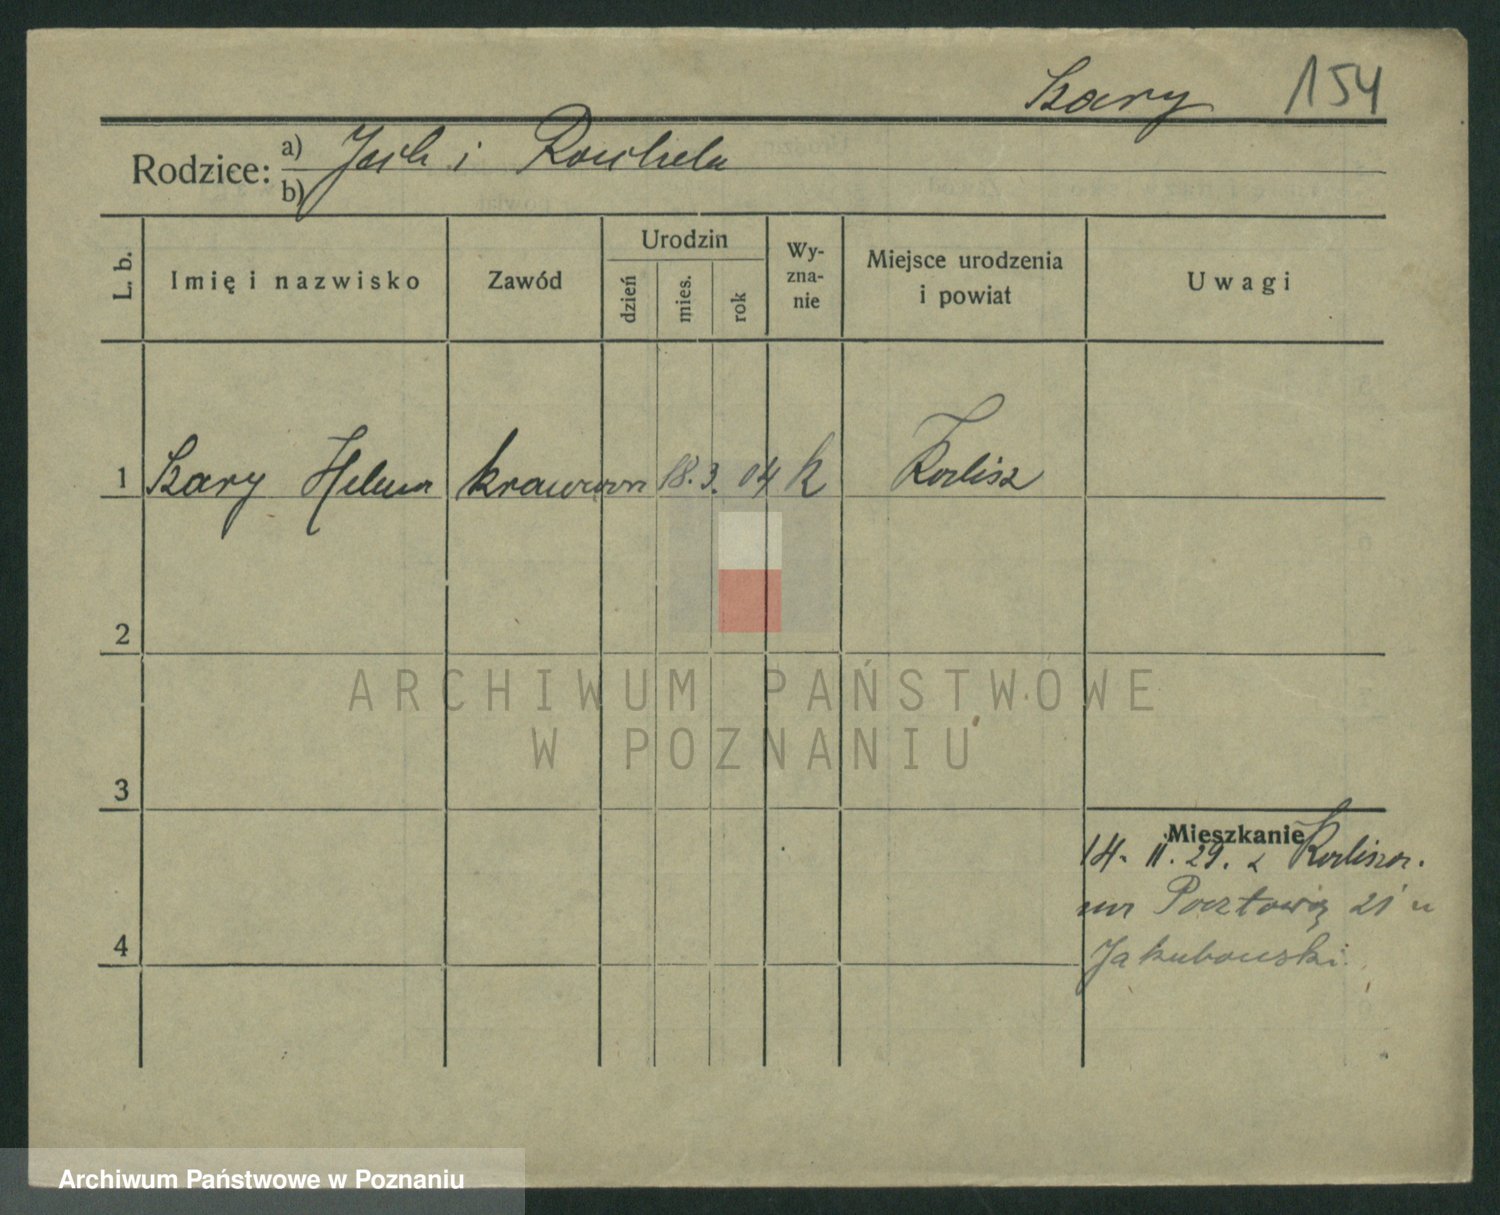 Szary 154
Rodzice: a) Jach i Rouhela
b)
L. b.
Imię i nazwisko
Zawód
Urodzin
dzień
mies.
rok
Wy-
zna-
nie
Miejsce urodzenia
i powiat
Uwagi
1 Szary Helena krawcowa 18. 3. 04 k Kalisz
2
ARCHIWUM PAŃSTWOWE
W POZNANIU
3
Mieszkanie
14. 11. 29. z Kalisza.
na Pocztową 21 u
Jakubowski.
4
Archiwum Państwowe w Poznaniu